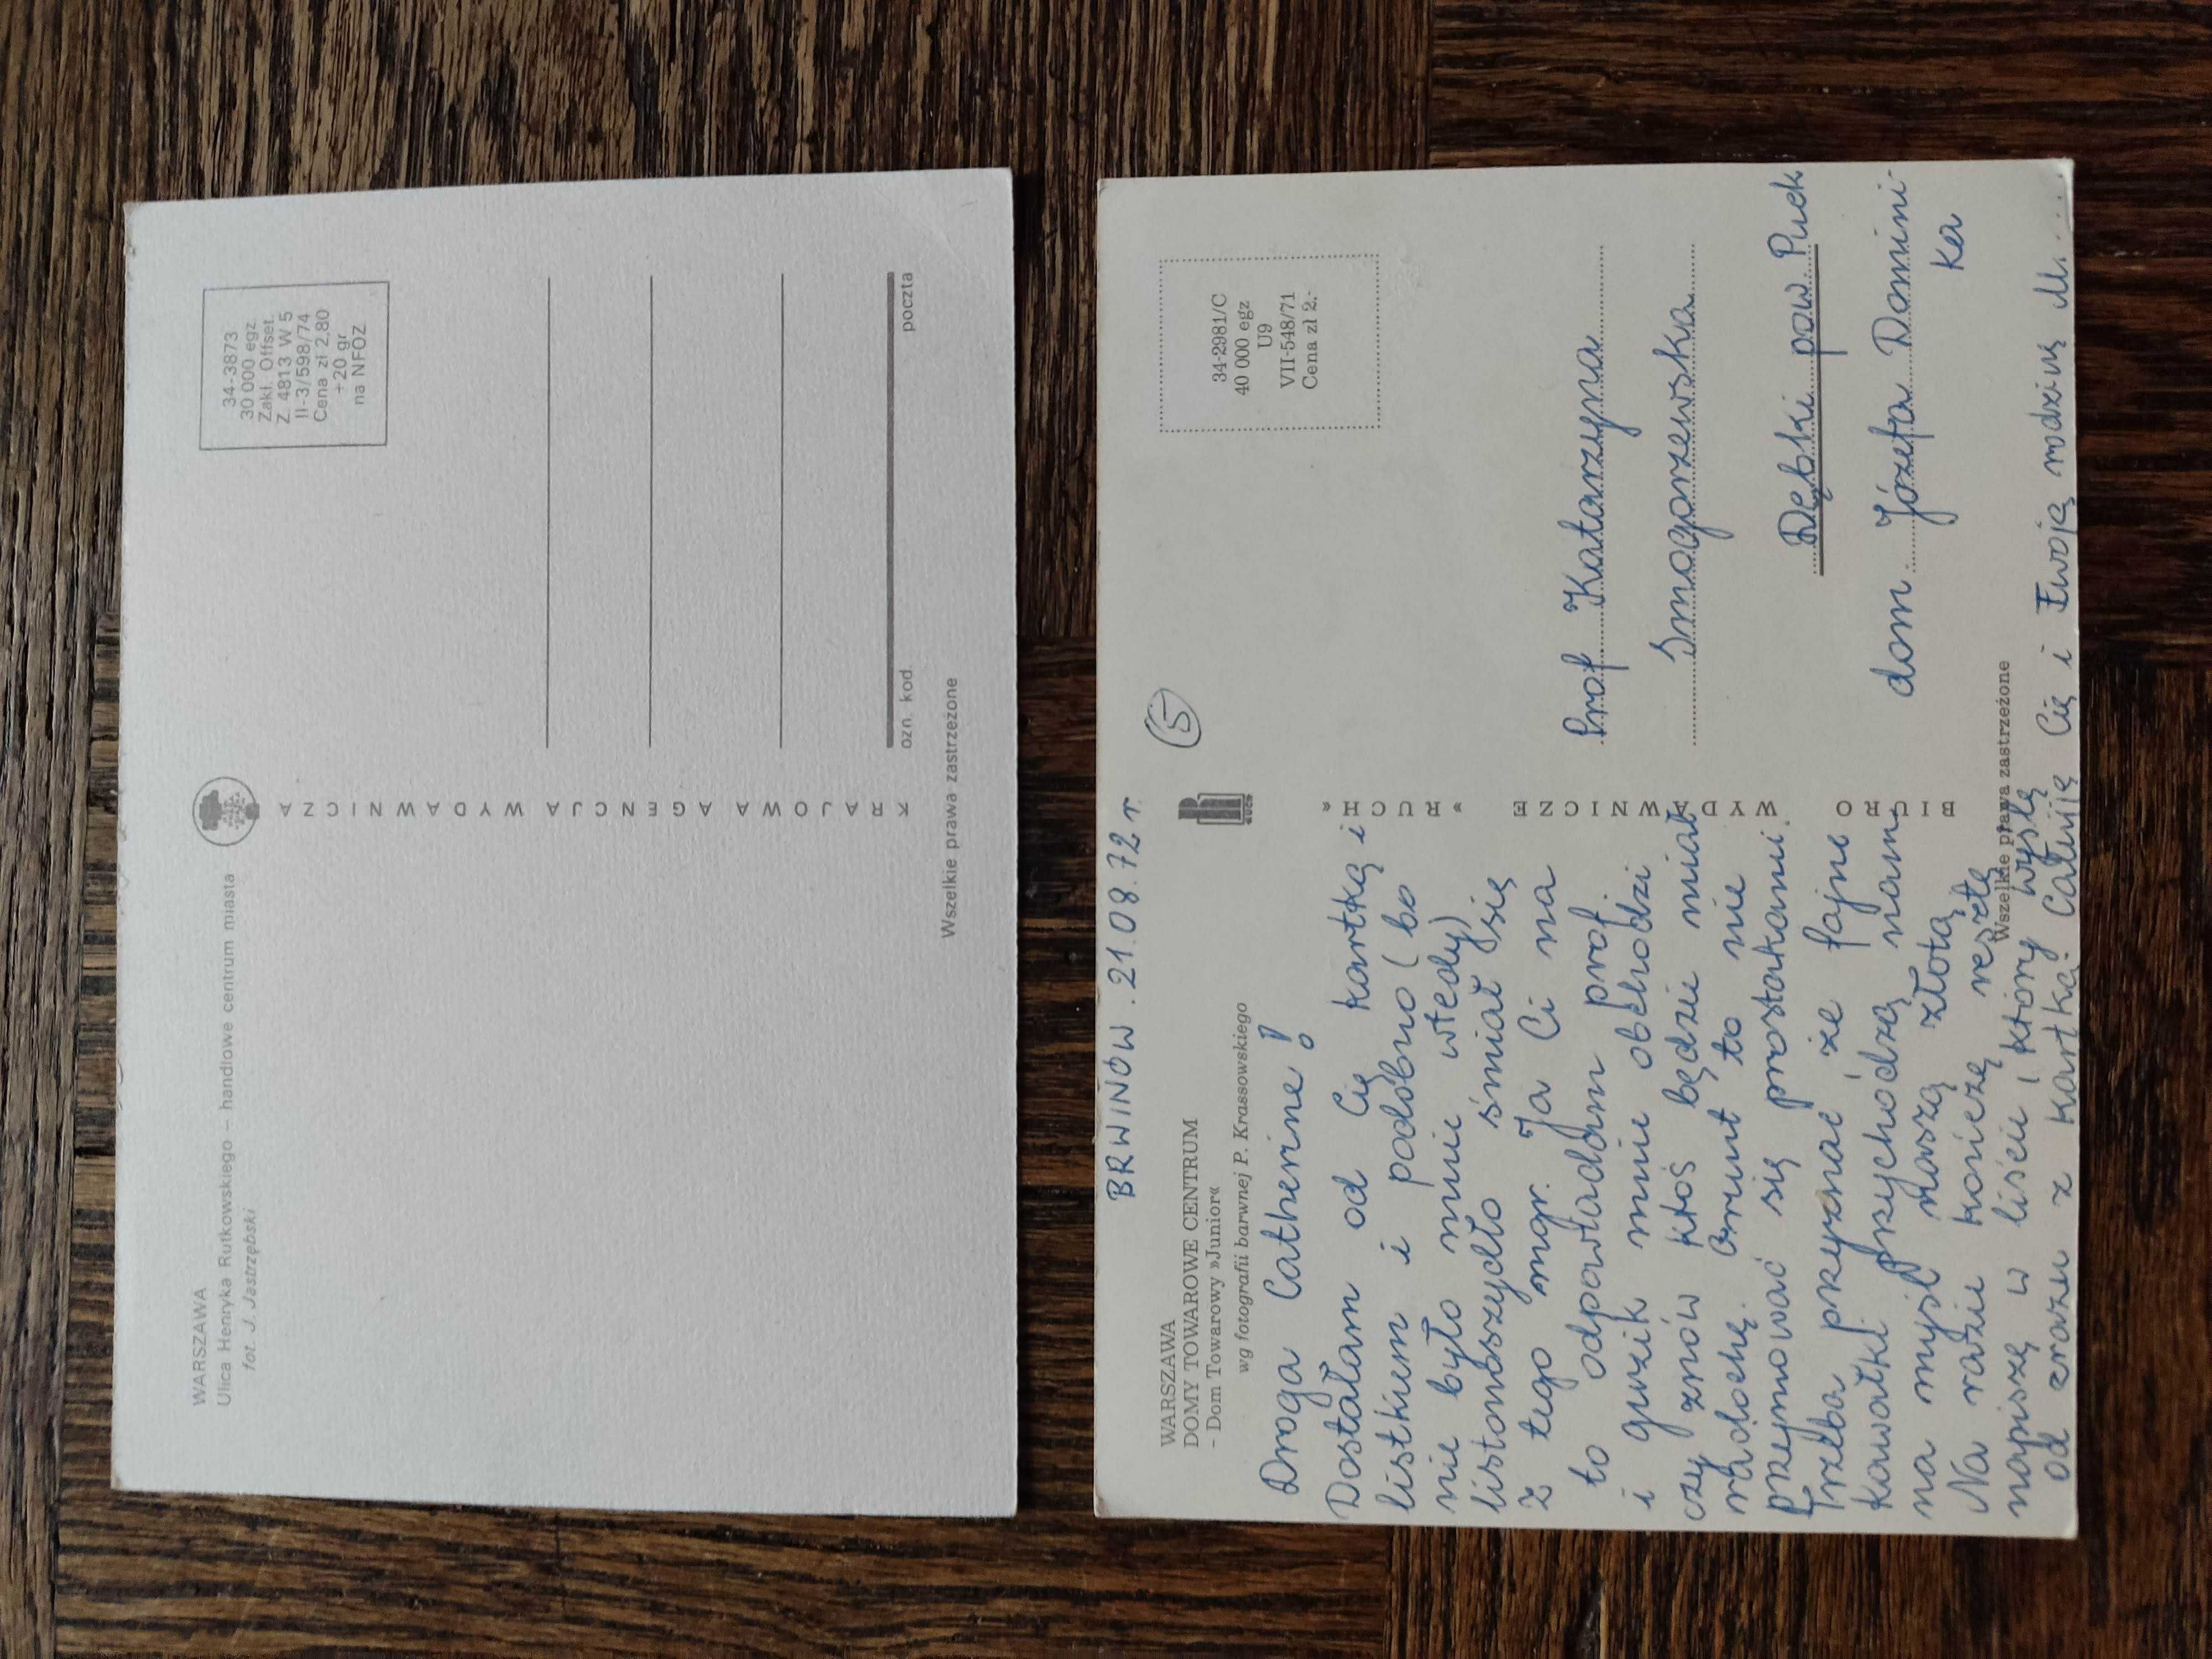 WARSZAWA
Ulica Henryka Rutkowskiego – handlowe centrum miasta
fot. J. Jastrzębski
KRAJOWA AGENCJA WYDAWNICZA
34-3873
30 000 egz.
Zakł. Offset.
Z. 4813 W 5
II-3/598/74
Cena zł 2,80
+20 gr
na NFOZ
ozn. kod. poczta
Wszelkie prawa zastrzeżone
BRWINÓW. 21.08.72 r.
WARSZAWA
DOMY TOWAROWE CENTRUM
– Dom Towarowy »Junior«
wg fotografii barwnej P. Krassowskiego
Droga Catherine!
Dostałam od Cię kartkę i
listkiem i podobno (bo
nie było mnie wtedy)
listonoszydło śmiał się
z tego mgr. Ja Ci na
to odpowiadam prof.
i guzik mnie obchodzi
czy znów ktoś będzie miał
radochę. Grunt to nie
przejmować się prostakami.
Trzeba przyznać, że fajne
kawałki przychodzą nam
na myśl naszą złotą
Na razie kończę resztę
napiszę w liście, który wyślę
od zrazu z kartką. Całuję Cię i Twoją rodzinę M....
BIURO WYDAWNICZE »RUCH«
RUCH
5
34-2981/C
40 000 egz
U9
VII-548/71
Cena zł 2.-
Prof Katarzyna
Smogorzewska
Dębki pow Puck
dom Józefa Domini-
ka
Wszelkie prawa zastrzeżone